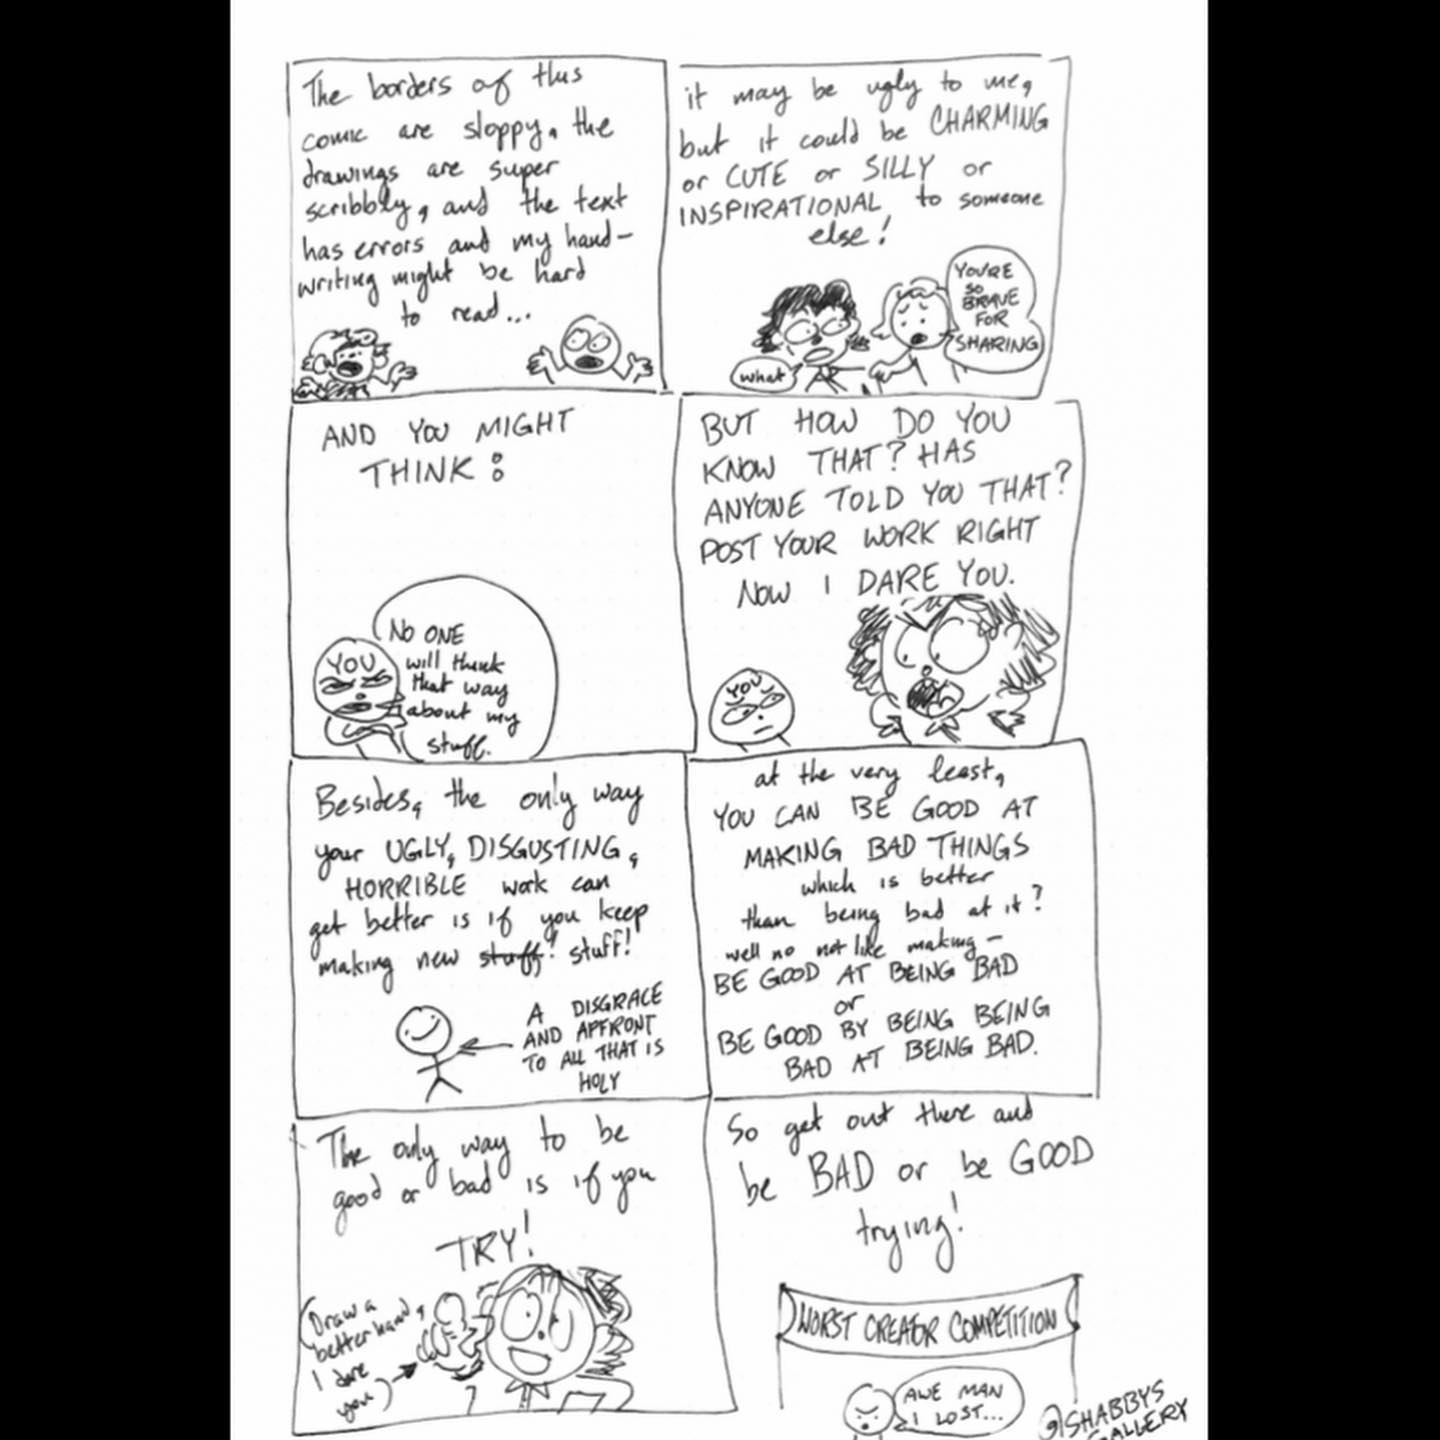 The borders of this
comic are sloppy, the
drawings are super
scribbly, and the text
has errors and my hand-
writing might be hard
to read...
it may be ugly to me,
but it could be CHARMING
or CUTE or SILLY or
INSPIRATIONAL to someone
else!
YOU'RE
SO
BRAVE
FOR
SHARING
what
AND YOU MIGHT
THINK:
NO ONE
will think
that way
about my
stuff.
YOU
BUT HOW DO YOU
KNOW THAT? HAS
ANYONE TOLD YOU THAT?
POST YOUR WORK RIGHT
NOW I DARE YOU.
YOU
Besides, the only way
your UGLY, DISGUSTING,
HORRIBLE work can
get better is if you keep
making new stuff! stuff!
A DISGRACE
AND AFFRONT
TO ALL THAT IS
HOLY
at the very least,
YOU CAN BE GOOD AT
MAKING BAD THINGS
which is better
than being bad at it?
well no not like making-
BE GOOD AT BEING BAD
or
BE GOOD BY BEING BEING
BAD AT BEING BAD.
The only way to be
good or bad is if you
TRY!
(Draw a
better hand,
I dare
you)
So get out there and
be BAD or be GOOD
trying!
WORST CREATOR COMPETITION
AWE MAN
I LOST...
@SHABBYS
GALLERY